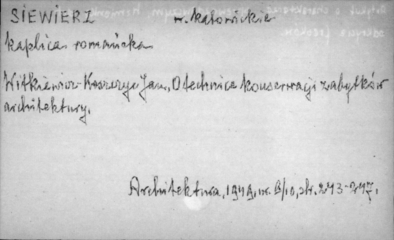 SIEWIERZ w. Katowickie
kaplica romańska
Witkiewicz-Koszczyc Jan, O technice konserwacji zabytków
architektury.
Architektura, 1949, nr. 8/10, str. 243-247.